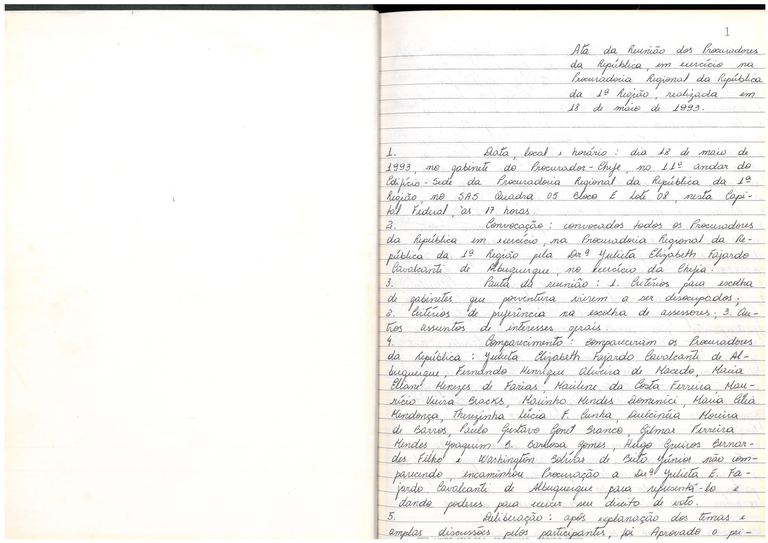 1
Ata da Reunião dos Procuradores
da República, em exercício na
Procuradoria Regional da República
da 1ª Região, realizada em
18 de maio de 1993.
1. Data, local e horário: dia 18 de maio de
1993, no gabinete do Procurador-Chefe, no 11º andar do
Edifício-Sede da Procuradoria Regional da República da 1ª
Região, no SAS Quadra 05 Bloco E Lote 08, nesta Capi-
tal Federal, às 17 horas.
2. Convocação: convocados todos os Procuradores
da República em exercício, na Procuradoria Regional da Re-
pública da 1ª Região pela Drª Yulieta Elizabeth Fajardo
Cavalcanti de Albuquerque, no exercício da Chefia.
3. Pauta da reunião: 1. Critérios para escolha
de gabinetes que porventura vierem a ser desocupados;
2. Critérios de preferência na escolha de assessores; 3. Ou-
tros assuntos de interesses gerais.
4. Comparecimento: compareceram os Procuradores
da República: Yulieta Elizabeth Fajardo Cavalcanti de Al-
buquerque, Fernando Henrique Oliveira de Macedo, Maria
Eliane Menezes de Farias, Maurilene da Costa Ferreira, Mau-
rício Vieira Bracks, Marinho Mendes Domenici, Maria Célia
Mendonça, Therezinha Lúcia F. Cunha, Dulcinéia Moreira
de Barros, Paulo Gustavo Gonet Branco, Gilmar Ferreira
Mendes, Joaquim B. Barbosa Gomes, Helgo Queiros Bernar-
des Filho e Washington Bolívar de Brito Júnior não com-
parecendo, encaminhou Procuração a Drª Yulieta E. Fa-
jardo Cavalcanti de Albuquerque para representá-lo e
dando poderes para exercer seu direito de voto.
5. Deliberação: após explanação dos temas e
amplas discussões pelos participantes, foi Aprovado o pri-